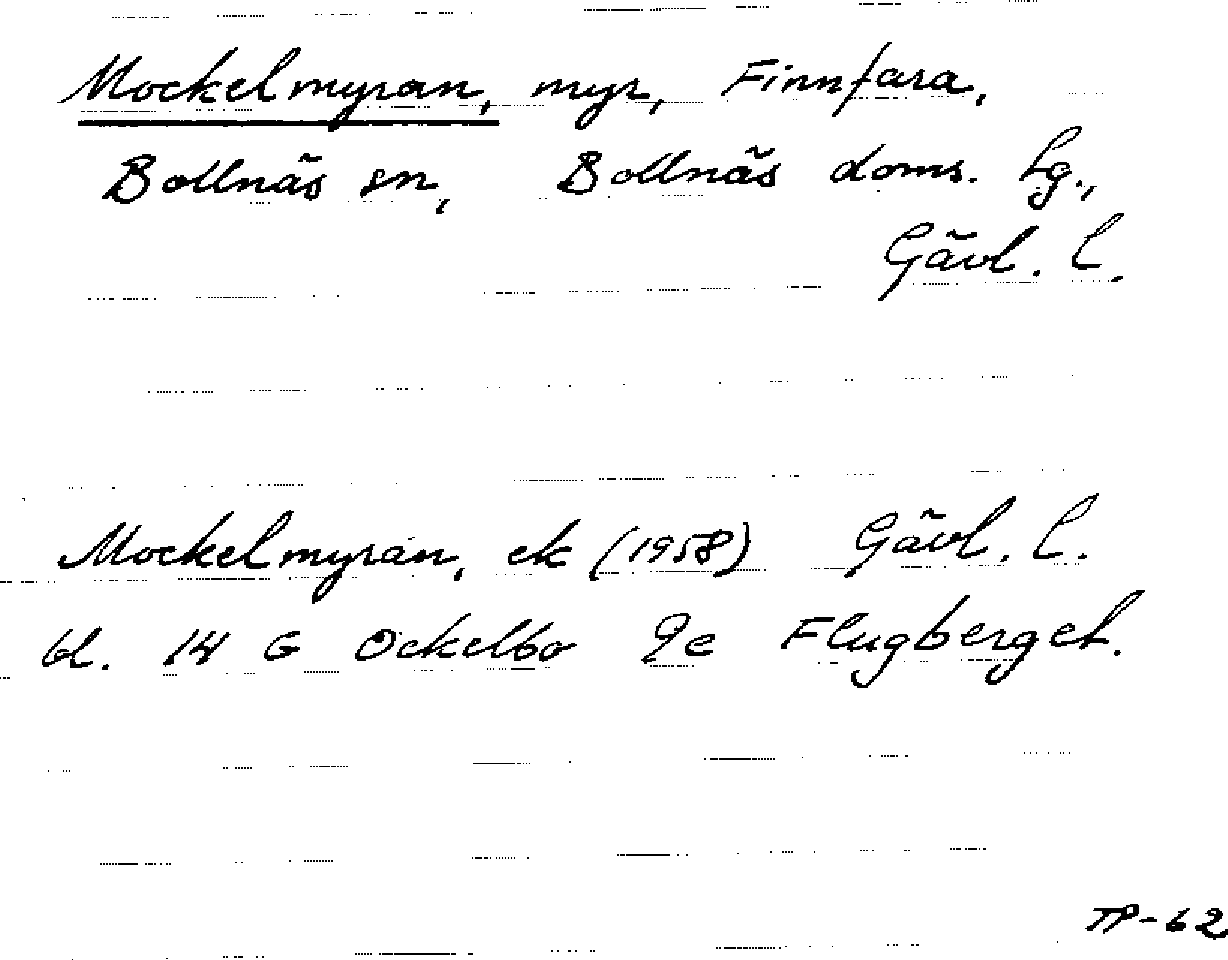 Mockelmyran, myr, Finnfara,
Bollnäs sn, Bollnäs doms. lg.,
Gävl. l.
Mockelmyran, ek (1958) Gävl. l.
bl. 14 G Ockelbo 9c Flugberget.
TP-62